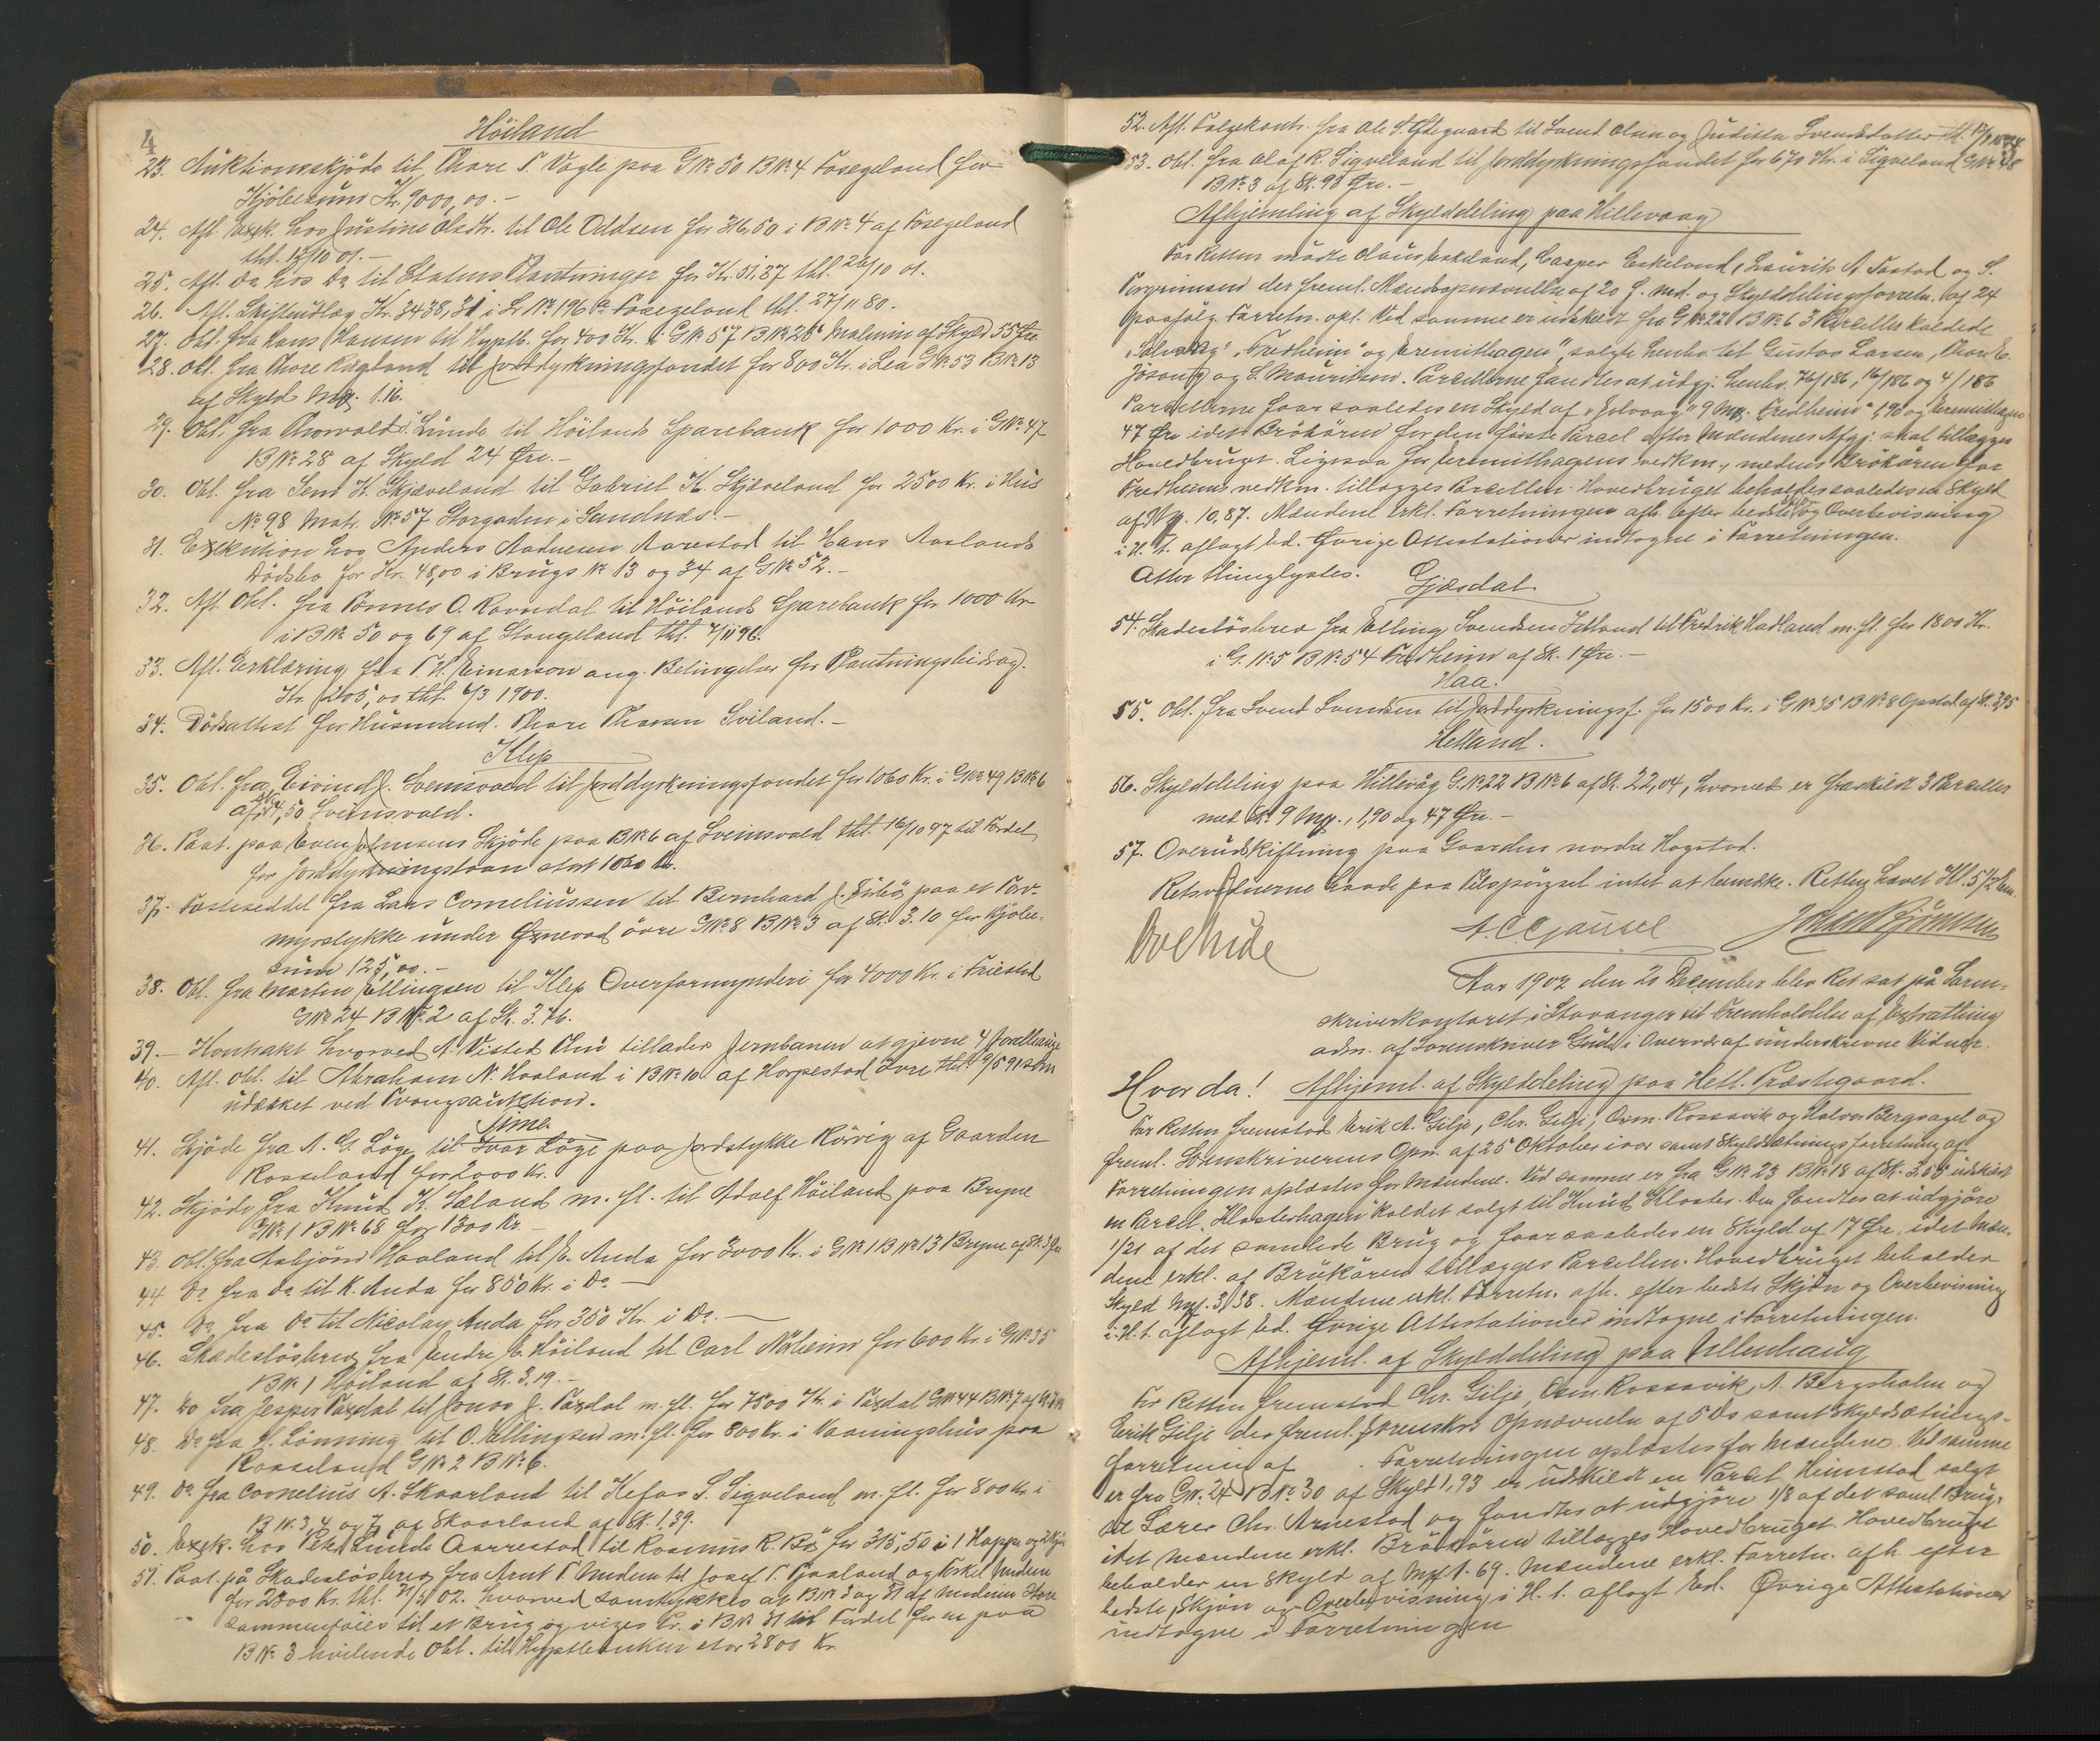 4
Höiland
23. Auktionsskjöde til Thore T. Vagle paa GNr. 50 BNr. 4 Foregeland for
Kjöbesum Kr. 9000,00.-
24. Afl. Exek. hos Justine Olsdtr. til Ole Oddsen for 316,50 i BNr. 4 af Fosegeland
thl. 12/10 01.-
25. Afl. Do hos Do til Statens Plantninger for Kr. 51.87 thl. 26/10 01.
26. Afl. Skifteudlæg Kr. 3438,31 i LNr 196a Fosegeland thl. 27/11 80.
27. Obl. fra Hans Hansen til Hyptb. for 400 Kr. i GNr. 57 BNr 28 Malmin af Skyld 55 Øre
28. Obl. fra Thore Rægland til Jorddyrkningsfondet for 800 Kr. i Lea GNr. 53 BNr 13
af Skyld Mrk. 1.16.
29. Obl. fra Thorvald Lunde til Höilands Sparebank for 1000 Kr. i GNr. 47
BNr 28 af Skyld 24 Øre.-
30. Obl. fra Sem K. Skjæveland til Gabriel K. Skjæveland for 2500 Kr. i Hus
No 98 Matr. No 57 Storgaden i Sandnæs.-
31. Exekution hos Anders Aadnesen Aarestad til Hans Aaslands
Dödsbo for Kr. 48,00 i Brugs Nr 13 og 34 af GNr 52.-
32. Afl. Obl. fra Tönnes O. Ravndal til Höilands Sparebank for 1000 Kr
i BNr 50 og 69 af Stangeland thl. 7/11 96.
33. Afl. Erklæring fra T. H. Einarson ang. Betingelser for Plantningsbidrag.
Kr. 205,00 thl. 6/3 1900.
34. Dödsattest for Husmand. Thore Thorsen Sviland.-
Klep
35. Obl. fra Eivind J. Svensvold til Jorddyrkningsfondet for 1060 Kr. i GNr 49 BNr 6
af Sk. 4,50 Sveinsvold.
36. Paat. paa Even Skjöde paa BNr 6 af Sveinsvold thl. 16/10 97 til Fordel
for Jorddyrkningslaan stort 1060 Kr.
37. Fæsteseddel fra Lars Corneliussen til Bernhard J. paa et Torv-
myrstykke under övre GNr 8 BNr 3 af Sk. 3.10 for Kjöbe-
sum 125,00.-
38. Obl. fra Martin Ellingsen til Klep Overformynderi for 4000 Kr. i Friestad
GNr 24 BNr. 2 af Sk. 3.76.
39.- Kontrakt hvorved A. Visted Thu tillader Jernbanen at gjevne 4
40. Afl. Obl. til Abraham N. Haaland i BNr 10 af Horpestad övre thl. 9/5 91 som
udslettet ved Tvangsauktion.
Time.
41. Skjöde fra A. G. Löge til Ivar Löge paa Jordstykke af Gaarden
Rosseland for 2000 Kr.
42. Skjöde fra Knud K. Taland m. fl. til Adolf Höiland paa Bryne
GNr 1 BNr 68 for 1300 Kr.-
43. Obl. fra Asbjörn Haaland til E. Anda for 3000 Kr. i GNr 1 BNr 13 Bryne af Sk.
44 Do fra Do til K. Anda for 850 Kr. i Do -
45. Do fra Do til Nicolay Anda for 350 Kr. i Do. -
46. Skadeslösbrev fra Endre E. Höiland til Carl for 600 Kr. i GNr 35
BNr 1 Höiland af Sk. 3.19.-
47. Do fra Jesper Taxdal til J. Taxdal m. fl. for 7500 Kr. i Taxdal GNr 44 BNr 7 af
48. Do fra H. Lönning til O. Ellingsen m. fl. for 800 Kr. i Vaaningshus paa
Rosseland GNr 2 BNr 6.
49. Do fra Cornelius A. Skaarland til Kefas S. Sigveland m. fl. for 800 Kr. i
BNr. 3,4 og 7 af Skaarland af Sk. 1,39.
50. Exek. hos Peter Lunde Aarrestad til Rasmus R. Bö for 315,50 i 1 Hoppe og 2 Kjör
51. Paat. på Skadeslösbrev fra Arnt T. Undem til Josef T. Gaaland og Eskel Undem
for 2300 Kr. thl. 02. hvorved samtykkes at BNr 3 og 31 af Undeim Store
sammenföies til et Brug og viges Pr. i BNr 31 til Fordel for en paa
BNr 3 hvilende Obl. til Hyptbanken stor 2800 Kr.
52. Afl. Følgekontr. fra Ole S. Østegaard til Svend Olsen og Juditta Svendsdatter
53. Obl. fra Olaf R. Sigveland til Jorddyrkningsfondet for 670 Kr. i Sigveland GNr 48
BNr. 3 af Sk. 98 Øre.-
Afhjemling af Skylddeling paa Hillevaag
For Retten mödte Claus Eskeland, Casper Eskeland, Laurits A. Tastad og S.
Torgrimsen der freml. Mændsopnævnelse af 20 f. md. og Skylddelingsforretn. af 24
paafölg. Forretn. opl. Ved samme er udskilt fra GNr 22 BNr. 6 3 Parceller kaldede
"Solvaag", "Fredheim" og Eremithagen", solgte henhv. til Gustav Larsen, Thore E.
Jösang og S. Mauritsen. Parcellerne fandtes at udgj. henhv. 76/186, 16/186 og 4/186
Parcellerne faar saaledes en Skyld af "Solvaag" 9 Mrk. Fredheim" 1,90 og Eremithagen
47 Øre idet Brökören for den förste Parcel efter Mændenes Afgj. skal tillægges
Hovedbruget. Ligesaa for Eremithagens vedkm., medens Brökören for
Fredheims vedkm. tillægges Parcellen. Hovedbruget beholder saaledes en Skyld
af Mrk. 10,87. Mændene erkl. Forretningen afh. efter bedste og Overbevisning
i H. t. aflagt Ed. Øvrige Attestationer indtagne i Forretningen.
Atter thinglystes.
Gjesdal
54. Skadeslösbrev fra Elling Svendsen Idland til Fredrik Hadland m. fl. for 1800 Kr.
i G.Nr. 5 BNr 54 Fredheim af Sk. 1 Øre.-
Haa.
55. Obl. fra Svend Svendsen til Jorddyrkningsf. for 1500 Kr. i GNr 35 BNr 8 Opstad af Sk. 3,95
Hetland.
56. Skylddeling paa Hillevåg G.Nr 22 BNr 6 af Sk. 22,04, hvorved er fraskildt 3 Parceller
med Sk. 9 Mrk., 1,90 og 47 Øre.-
57. Overudskiftning paa Gaarden nordre Hogstad.
Retsvidnerne havde paa Tilspörgsel intet at bemærke. Retten hævet Kl. 5 1/2 Em.
Ove Gude
A. C. Gausel
Johan Björnsen
Aar 1902 den 20 December blev Ret sat på Soren-
skriverkontoret i Stavanger til Fremholdelse af Extratthing
adm. af Sorenskriver Gude i Overvær af underskrevne Vidner.
Hvor da!
Afhjeml. af Skylddeling paa Hetl. Præstegaard.
For Retten fremstod Erik A. Gilje, Chr. Gilje, Osm. Rossavik og Halvor Bergsagel og
freml. Sorenskriverens Opn. af 25 Oktober i aar samt Skyldsætningsforretning af
Forretningen oplæstes for Mændene. Ved samme er fra GNr 23 BNr 18 af Sk. 3.55 udskilt
en Parcel, Klosterhagen kaldet solgt til Knud Kloster. Den fandtes at udgjöre
1/21 af det samlede Brug og faar saaledes en Skyld af 17 Øre, idet Mæn-
dene erkl. af Brökören tillægges Parcellen. Hovedbruget beholder
Skyld Mrk. 3,38. Mændene erkl. Forretn. afh. efter bedste Skjön og Overbevisning
i H. t. aflagt Ed. Øvrige Attestationer indtagne i Forretningen.
Afhjeml. af Skylddeling paa Ullenhaug
For Retten fremstod Chr. Gilje, Osm. Rossavik, A. Bergsholm og
Erik Gilje der freml. Sorenskr. Opnævnelse af 5 Ds samt Skyldsætnings-
forretning af . Forretningen oplæstes for Mændene. Ved samme
er fra GNr. 24 BNo 30 af Skyld 1,93 er udskildt en Parcel Heimstad solgt
til Lærer Chr. Arnestad og fandtes at udgjöre 1/8 af det saml. Brug,
idet Mændene erkl. Brökören tillægges Hovedbruget. Hovedbruget
beholder en Skyld af Mrk 1.69. Mændene erkl. Forretn. afh. efter
bedste Skjön og Overbevisning i H. t. aflagt Ed. Øvrige Attestationer
indtagne i Forretningen